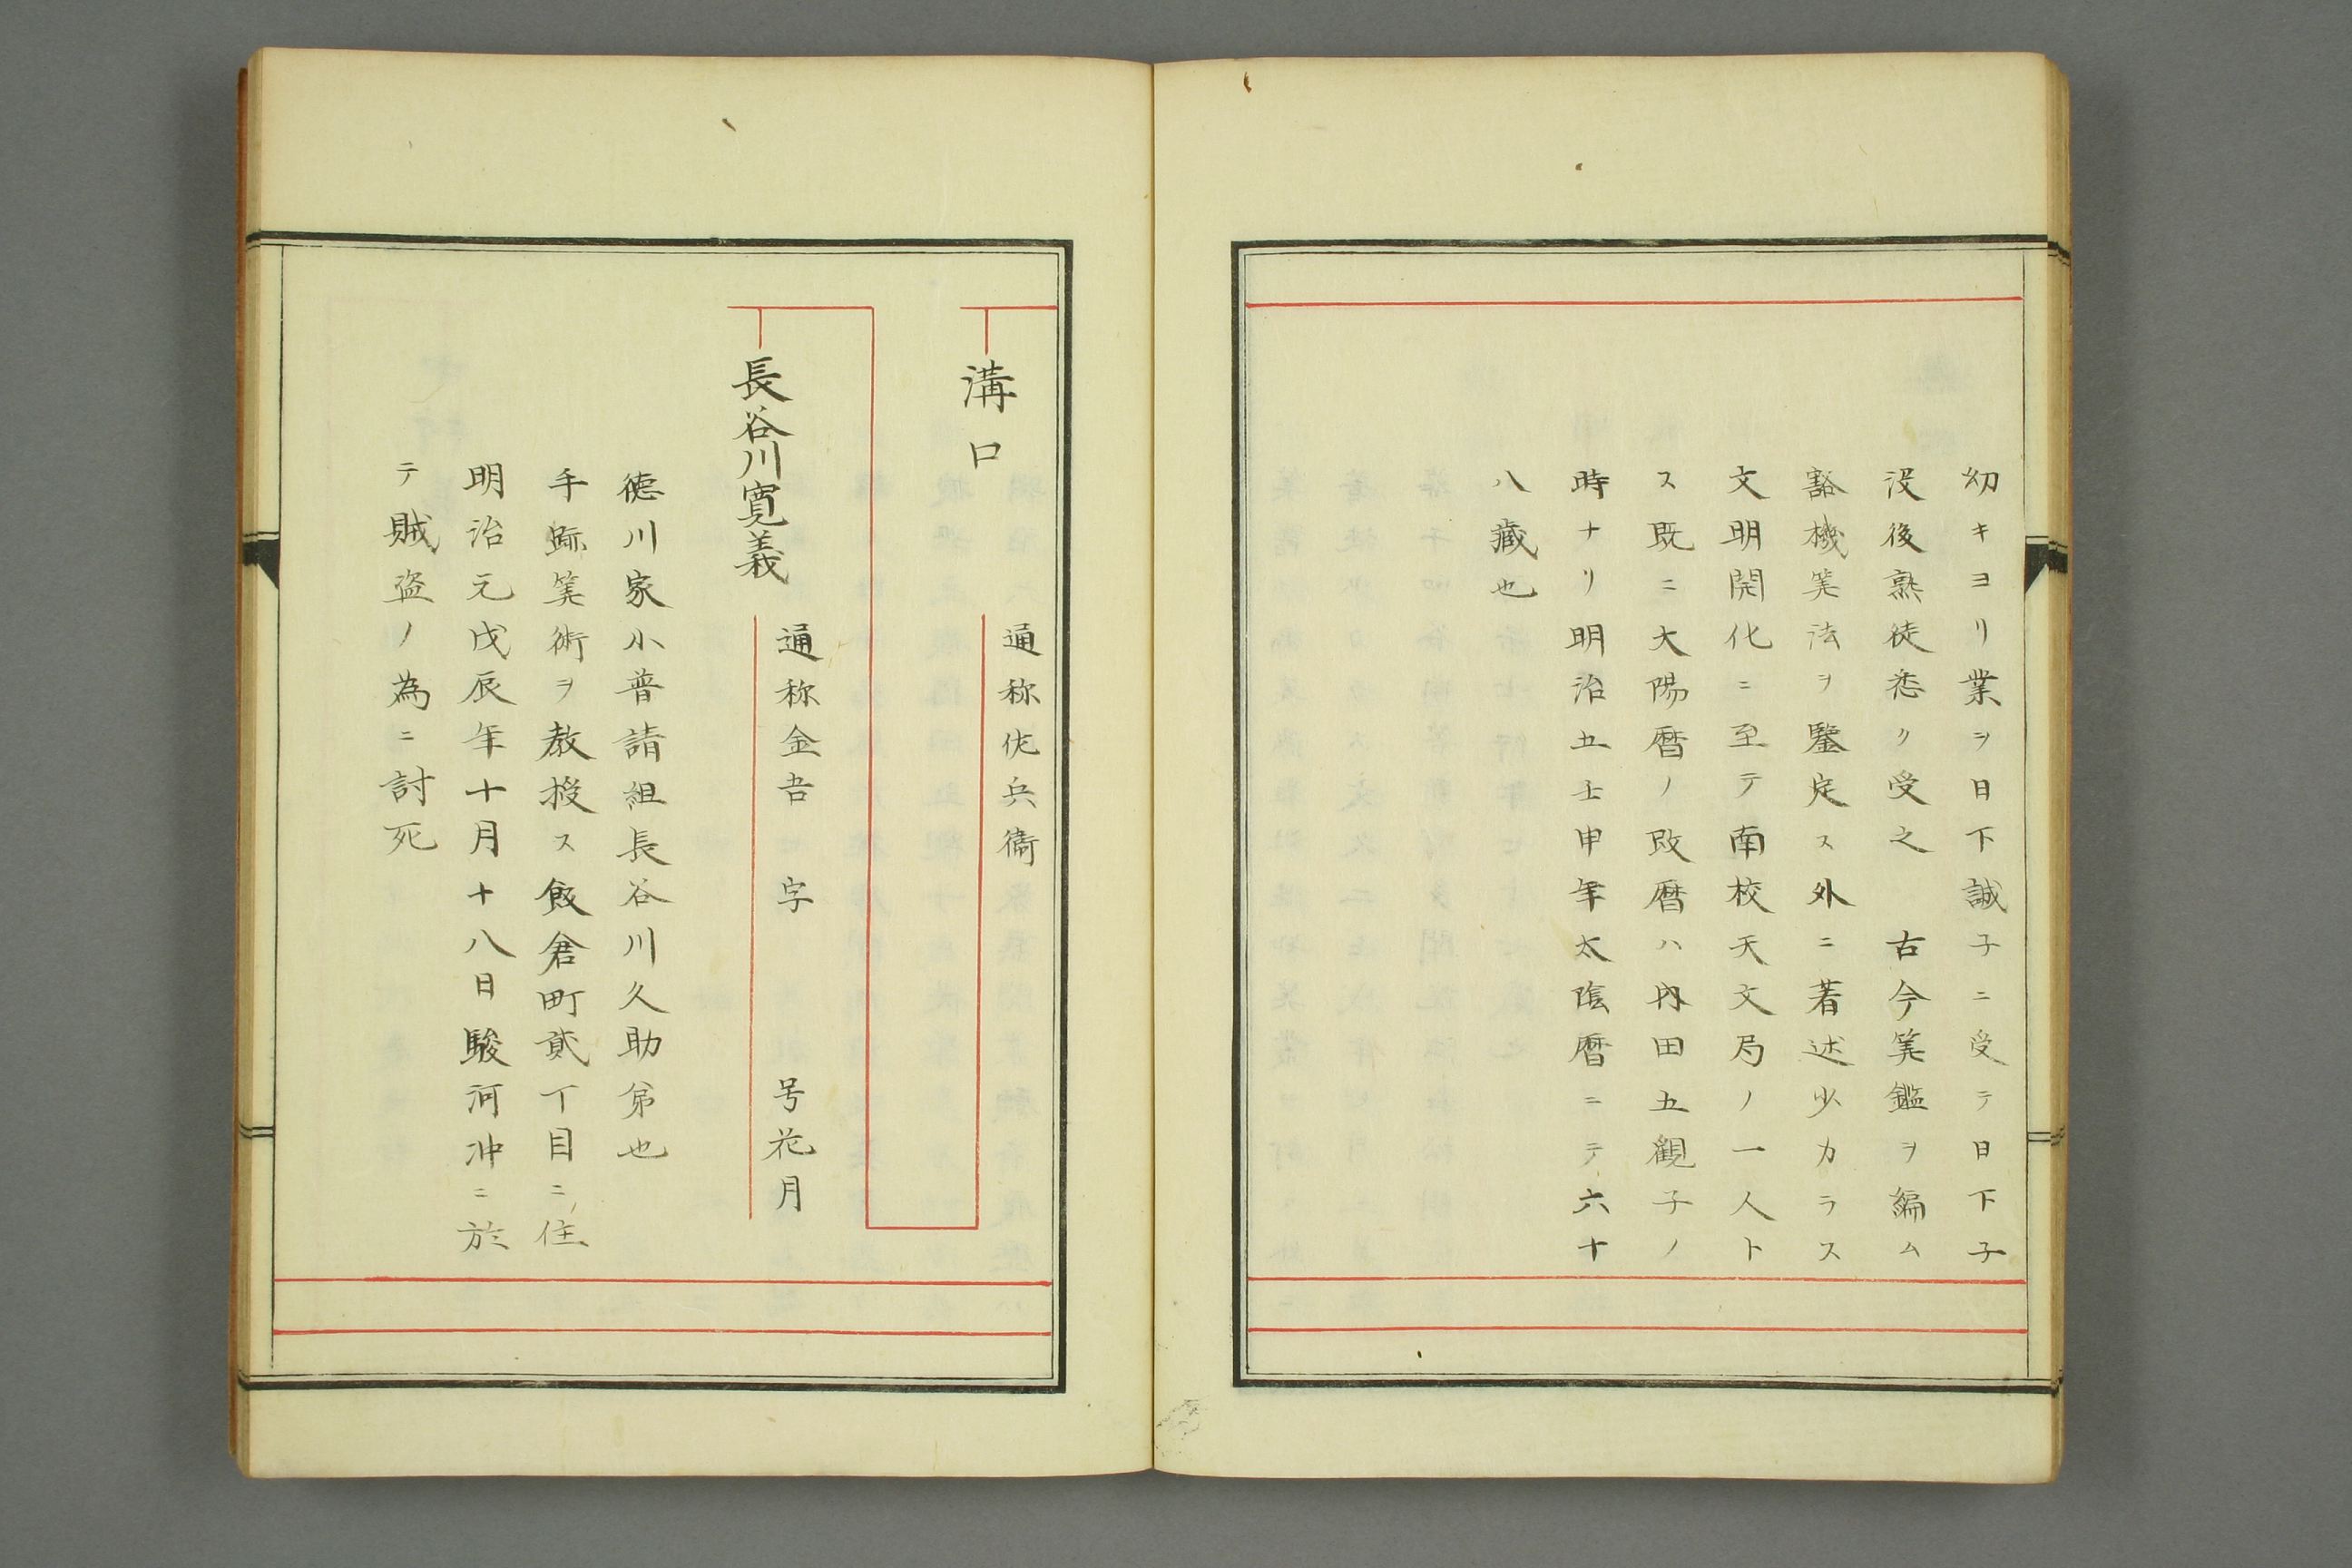 幼キヨリ業ヲ日下誠子ニ受テ日下子
没後熟徒悉ク受之　古今筭鑑ヲ編ム
豁機筭法ヲ鑒定ス外ニ著述少カラス
文明開化ニ至テ南校天文局ノ一人ト
ス既ニ大陽暦ノ改暦ハ内田五観子ノ
時ナリ明治五壬申年太陰暦ニテ六十
八歳也
溝口
通称佐兵衞
長谷川寛義
通称金吾　字　　号花月
徳川家小普請組長谷川久助弟也
手跡筭術ヲ教授ス飯倉町貳丁目ニ住
明治元戊辰年十月十八日駿河沖ニ於
テ賊盗ノ為ニ討死